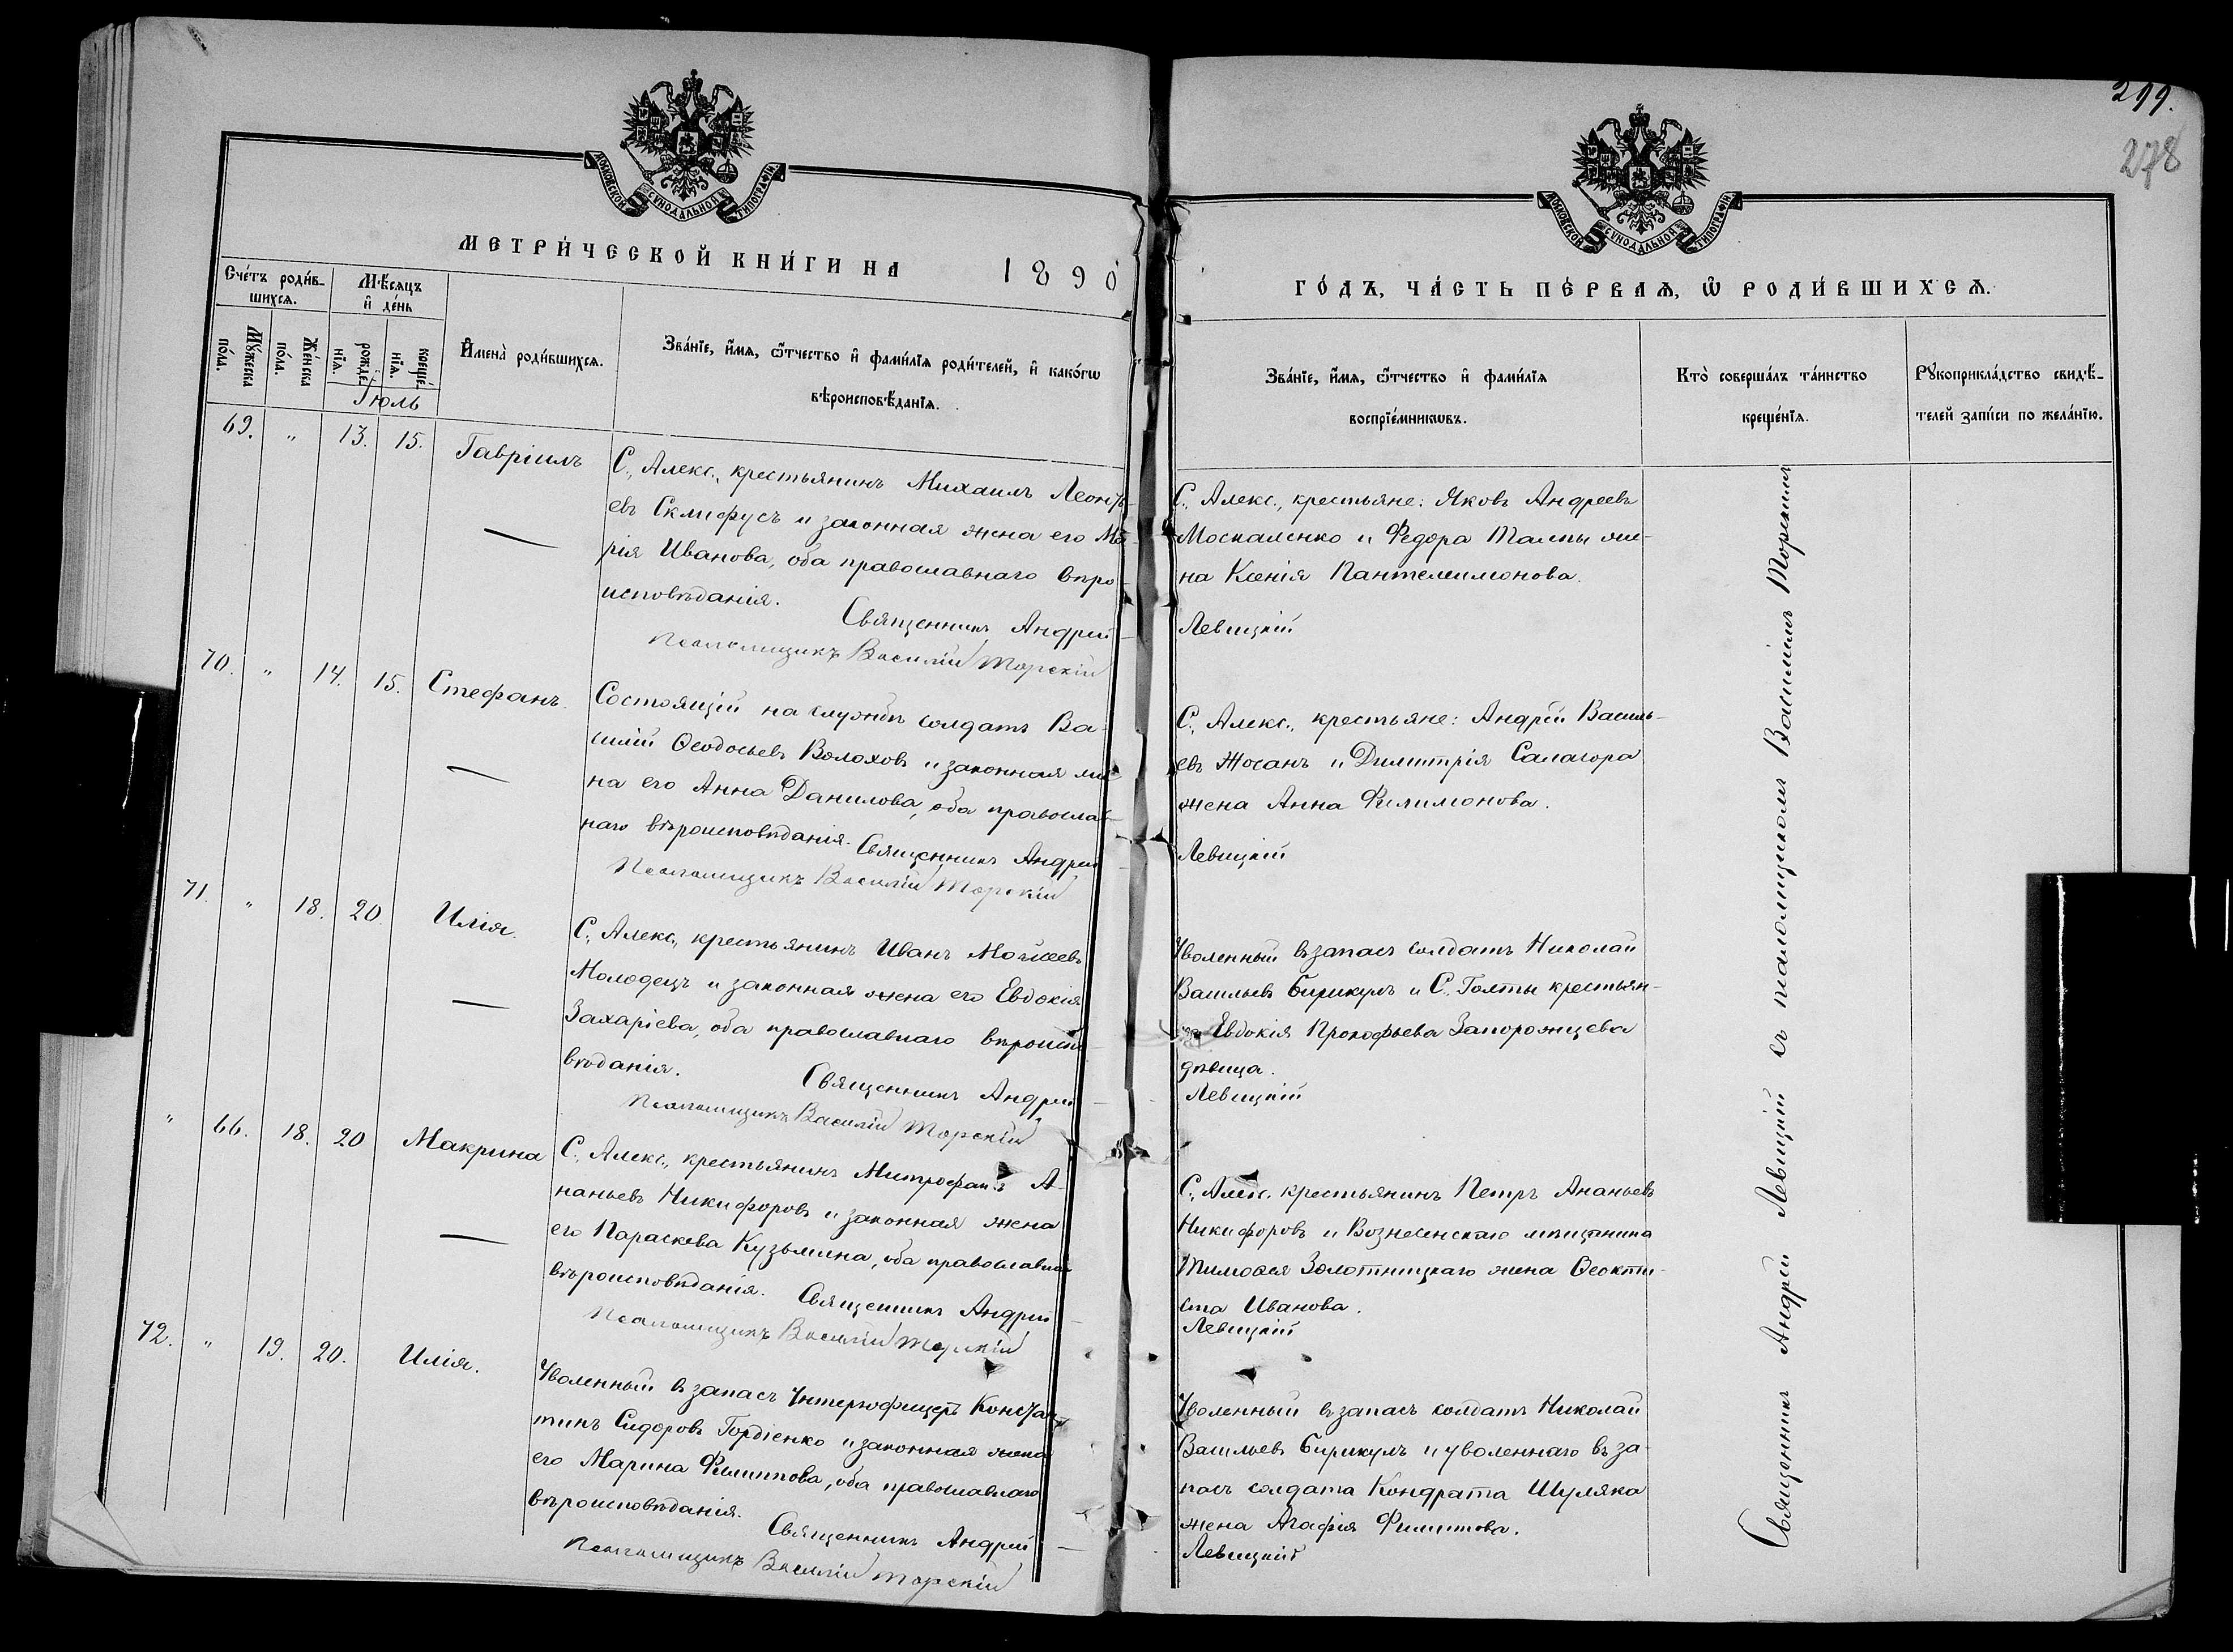 299.
278
МОСКОВСКОЙ СѴНОДАЛЬНОЙ ТИПОГРАФІИ
МОСКОВСКОЙ СѴНОДАЛЬНОЙ ТИПОГРАФІИ
МЕТРИ́ЧЕСКОЙ КНИ́ГИ НА 1890
ГО́ДЪ, ЧА́СТЬ ПЕ́РВАѦ, Ѡ҆ РОДИ́ВШИХСѦ.
Сче́тъ роди́в-
шихсѧ.
Мꙋ́жеска
по́ла.
Же́нска
по́ла.
Мѣ́сѧцъ
и҆ де́нь
рожде́-
нїѧ.
креще́-
нїѧ.
Іюль
И҆мена̀ роди́вшихсѧ.
Зва́нїе, и҆́мѧ, ѻ҆́тчество и҆ фами́лїѧ роди́телей, и҆ како́гѡ
вѣроисповѣ́данїѧ.
Зва́нїе, и҆́мѧ, ѻ҆́тчество и҆ фами́лїѧ
воспрїе́мникѡвъ.
Кто̀ соверша́лъ та́инство
креще́нїѧ.
Рꙋкоприкла́дство свидѣ́-
телей за́писи по жела́нїю.
69. " 13. 15. Гавріилъ
С., Алекс., крестьянинъ Михаилъ Леонть-
евъ Склифусъ и законная жена его Ма-
рія Иванова, оба православнаго вѣро-
исповѣданія.
Священникъ Андрей
Псаломщикъ Василій Торскій
С., Алекс., крестьяне: Яковъ Андреевъ
Москаленко и Федора Талпы же-
на Ксенія Пантелеимонова.
Левицкій
70. " 14. 15. Стефанъ.
Состоящій на службѣ солдатъ Ва-
силій Ѳеодосьевъ Волоховъ и законная же-
на его Анна Данилова, оба православ-
наго вѣроисповѣданія. Священникъ Андрей
Псаломщикъ Василій Торскій
С., Алекс., крестьяне: Андрей Василь-
евъ Жосанъ и Димитрія Салагора
жена Анна Филимонова.
Левицкій
71. " 18. 20. Илія.
С., Алекс., крестьянинъ Иванъ Моѵсеевъ
Молодецъ и законная жена его Евдокія
Захаріева, оба православнаго вѣроиспо-
вѣданія.
Священникъ Андрей
Псаломщикъ Василій Торскій
Уволенный въ запасъ солдатъ Николай
Васильевъ Бирикулъ и С. Голты крестьян-
ка Евдокія Прокофьева Запорожцева
дѣвица.
Левицкій
" 66. 18. 20 Макрина
С., Алекс., крестьянинъ Митрофанъ А-
наньевъ Никифоровъ и законная жена
его Параскева Кузьмина, оба православна
вѣроисповѣданія. Священникъ Андрей
Псаломщикъ Василій Торскій
С., Алекс. крестьянинъ Петръ Ананьевъ
Никифоровъ и Вознесенскаго мѣщанина
Тимоѳея Золотницкаго жена Ѳеокти-
ста Иванова.
Левицкій
72. " 19. 20. Илія.
Уволенный въ запасъ Унтерофицеръ Констан-
тинъ Сидоровъ Гордіенко и законная жена
его Марина Филиппова, оба православнаго
вѣроисповѣданія.
Священникъ Андрей
Псаломщикъ Василій Торскій
Уволенный въ запасъ солдатъ Николай
Васильевъ Бирикулъ и уволеннаго въ за-
пасъ солдата Кондрата Шуляка
жена Агафія Филиппова.
Левицкій
Священникъ Андрей Левицкій съ псаломщикомъ Василіемъ Торскимъ